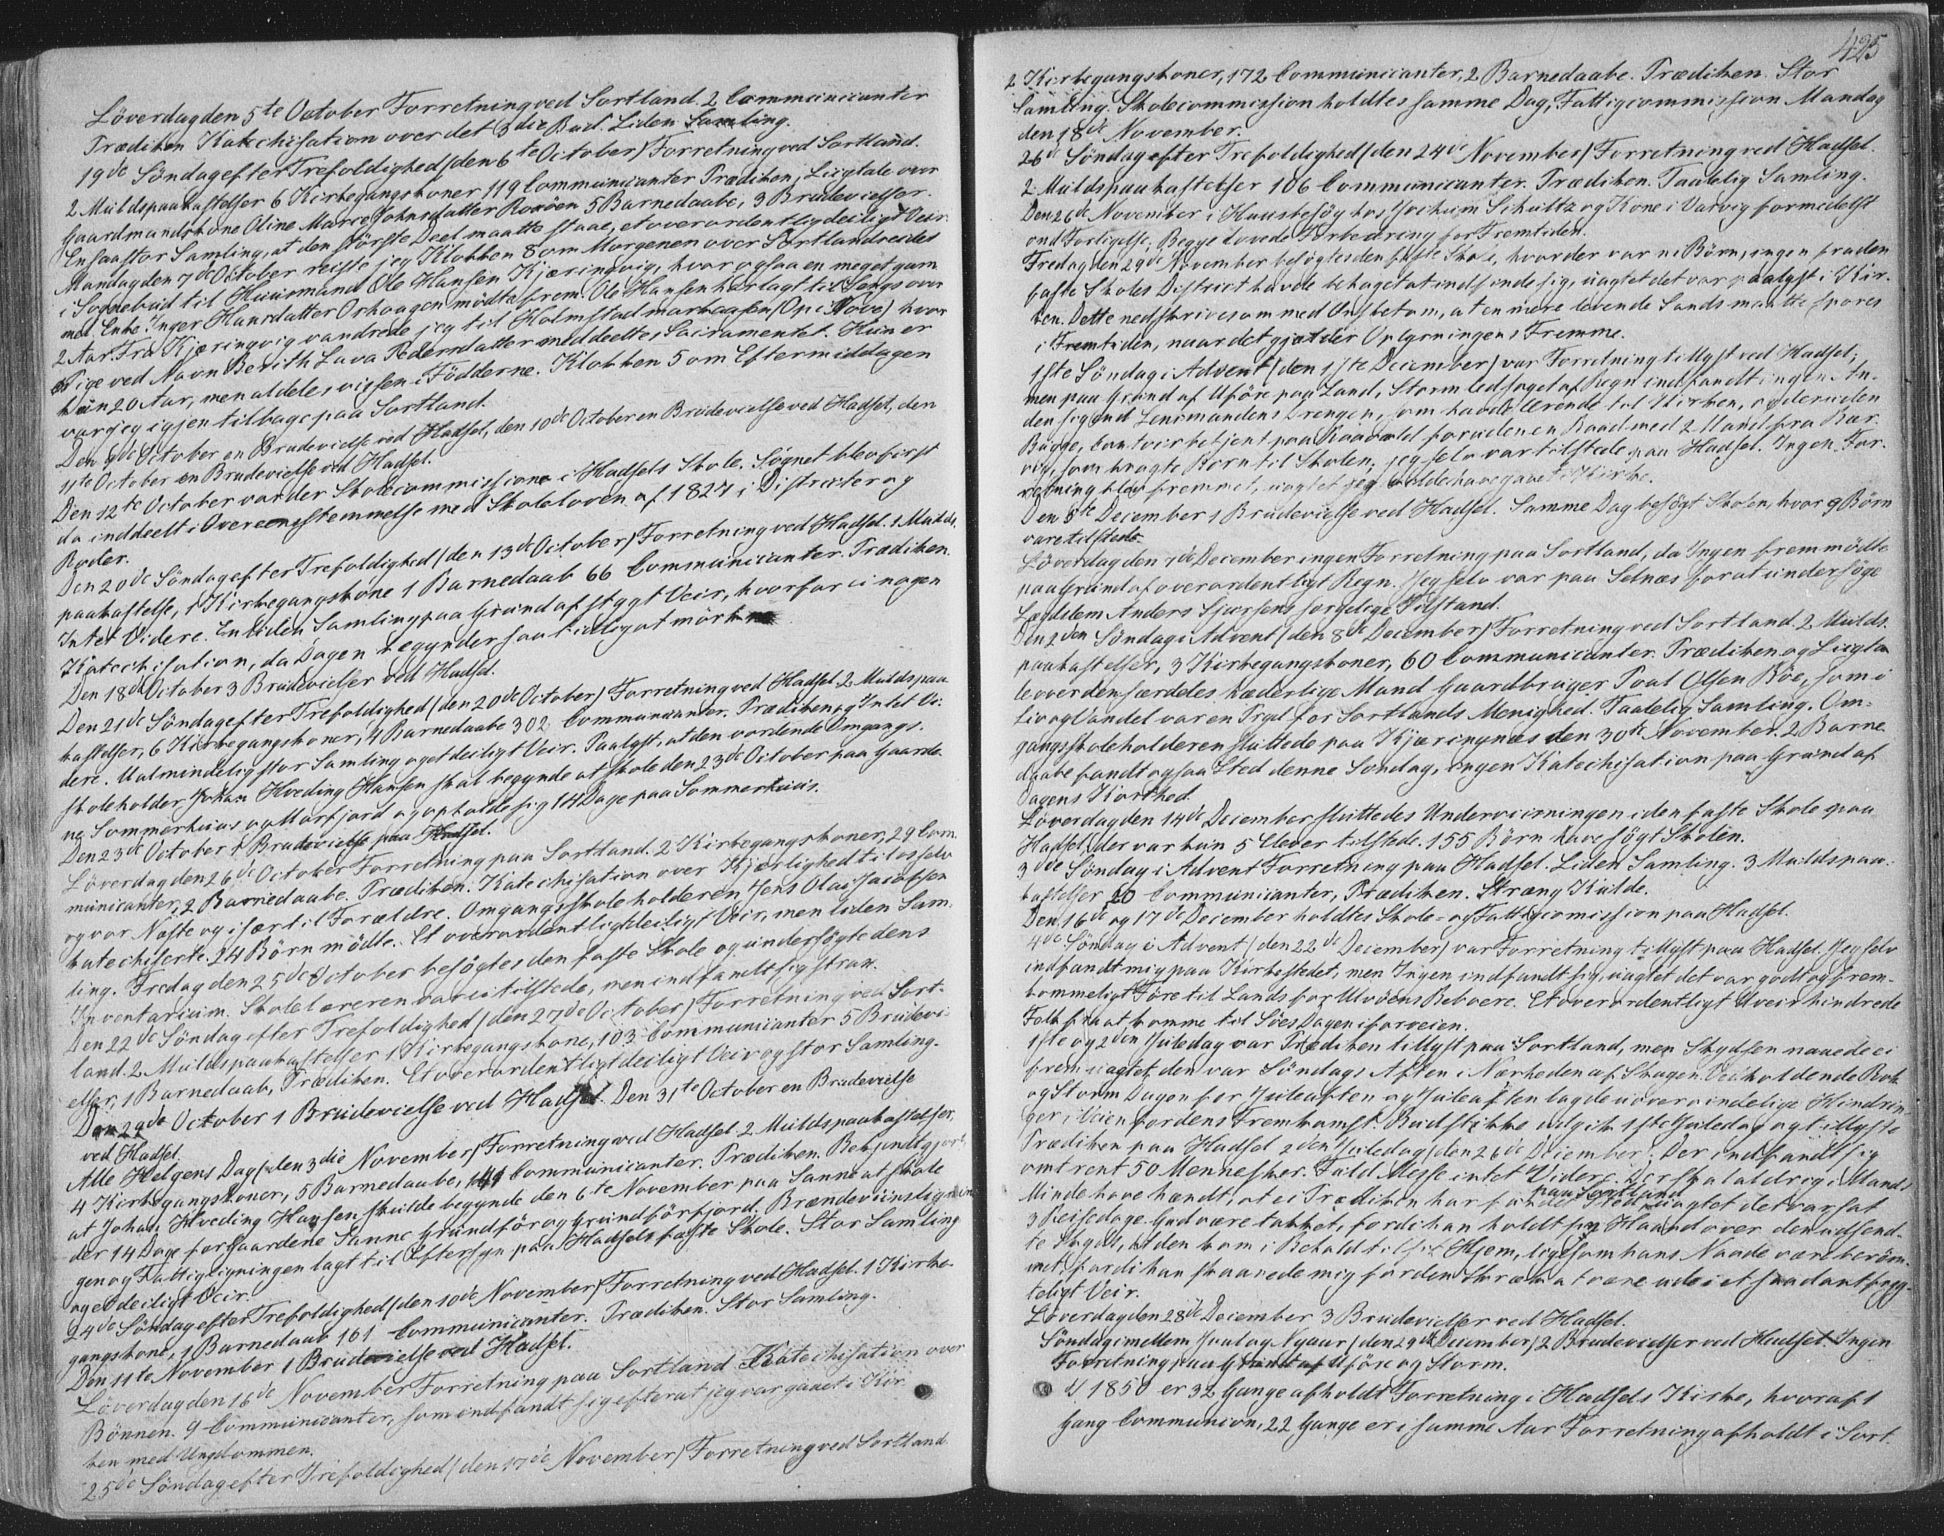 Löverdag den 5te October Forretning ved Sortland. 2 Communicanter
Prædiken Katechisation over det 3die Bud. Liden Samling.
19de Söndag efter Trefoldighed (den 6te October) Forretning ved Sortland.
2 Muldspaakastelser 6 Kirkegangskoner 119 Communicanter Prædiken, Liigtale over
Gaardmandskone Oline Marie Johnsdatter 5 Barnedaabe, 3 Brudevielser.
En saa stor Samling, at den störste Deel maatte staae, et overordentlig deiligt Veir.
Mandag den 7de October reiste jeg Klokken 8 om Morgenen over Sortlandseidet
i Sognebud til Huusmand Ole Hansen Kjæringvig, hvor ogsaa en meget gam
mel Enke Inger Hansdatter Orhaagen mödte frem. Ole Hansen har lagt til Sengs over
2 Aar. Fra Kjæringvig vandrede jeg til Holmstad (Op i Hove) hvor
en Pige ved Navn Berith Lava Pedersdatter meddeeltes Sacramentet. Hun er
kun 20 Aar, men aldeles vissen i Födderne. Klokken 5 om Eftermiddagen
var jeg igjen tilbage paa Sortland.
Den 9de October en Brudevielse ved Hadsel, den 10de October en Brudevielse ved Hadsel, den
11te October en Brudevielse ved Hadsel.
Den 12te October var der Skolecommission i Hadsels Skole. Sognet blev först
da inddeelt i Overeensstemmelse med Skoleloven af 1827 i Districter og
Roder.
Den 20de Söndag efter Trefoldighed (den 13de October) Forretning ved Hadsel. 1 Mulds-
paakastelse, 1 Kirkegangskone 1 Barnedaab 66 Communicanter. Prædiken.
Intet Videre. En liden Samling paa Grund af stygt Veir, hvorfor ei nogen
Katechisation, da Dagen begynder saa tidligt at mörkne
Den 18de October 3 Brudevielser ved Hadsel.
Den 21de Söndag efter Trefoldighed (den 20de October) Forretning ved Hadsel 2 Muldspaa
kastelser, 6 Kirkegangskoner, 4 Barnedaabe 302 Communicanter. Prædiken og Intet Vi-
dere. Ualmindelig stor Samling og et deiligt Veir. Paalyst, at den vordende Omgangs-
skoleholder Johan Hveding Hansen skal begynde at skole den 23de October paa Gaarde
ne Sommerhuus og Morfjord og opholde sig 14 Dage paa Sommerhuus.
Den 23de October 1 Brudevielse paa Hadsel.
Löverdag den 26de October Forretning paa Sortland. 2 Kirkegangskoner, 29 Com-
municanter, 2 Barnedaabe. Prædiken. Katechisation over Kjærlighed til os selv
og vor Næste og især til Forældre. Omgangsskoleholderen Jens Olai Jacobsen
katechiserte. 24 Börn mödte. Et overordentligt deiligt Veir, men liden Sam-
ling. Fredag den 25de October besögtes den faste Skole og undersögte dens
Inventarium. Skolelæreren var ei tilstede, men indfandt sig strax.
Den 22de Söndag efter Trefoldighed (den 27de October) Forretning ved Sort-
land. 2 Muldspaakastelser 1 Kirkegangskone, 103 Communicanter 5 Brudevi-
elser, 1 Barnedaab, Prædiken. Et overordentligt deiligt Veir og stor Samling.
Den 29de October 1 Brudevielse ved Hadsel. Den 31te October en Brudevielse
ved Hadsel.
Alle Helgens Dag (den 3die November) Forretning ved Hadsel 2 Muldspaakastelser,
4 Kirkegangskoner, 5 Barnedaabe, Communicanter. Prædiken. Bekjendtgjort
at Johan Hveding Hansen skulde begynde den 6te November paa Sanne at skole
der 14 Dage for Gaardene Sanne Grundför og Grundförfjord. Brændeviinslignin
gen og Fattigligningen lagt til Eftersyn paa Hadsels faste Skole. Stor Samling
og et deiligt Veir.
24de Söndag efter Trefoldighed (den 10de November) Forretning ved Hadsel. 1 Kirke-
gangskone, 1 Barnedaab 161 Communicanter. Prædiken. Stor Samling.
Den 11te November 1 Brudevielse ved Hadsel.
Löverdag den 16de November Forretning paa Sortland Katechisation over
Bönnen. 9 Communicanter, som indfandt sig efterat jeg var gaaet i Kir-
ken med Ungdommen.
25de Söndag efter Trefoldighed (den 17de November) Forretning ved Sortland
425
2 Kirkegangskoner, 172 Communicanter, 2 Barnedaabe. Prædiken. Stor
Samling. Skolecommission holdtes samme Dag, Fattigcommission Mandag
den 18de November.
26de Söndag efter Trefoldighed (den 24de November) Forretning ved Hadsel.
2 Muldspaakastelser 106 Communicanter. Prædiken. Taalelig Samling.
Den 26de November i Huusbesög hos Jochum Schultz og Kone i Varvig formedelst
ond Forligelse; Begge lovede Forbedring for Fremtiden.
Fredag den 29de November besögtes den faste Skole, hvor der var ni Börn, ingen fra den
faste Skoles District havde behaget at indfinde sig, uagtet det var paalyst i Kir-
ken. Dette nedskrives om med Önske om, at en mere levende Sands maatte spores
i Fremtiden, naar det gjælder Oplysningens Fremme.
1ste Söndag i Advent (den 1ste December) var Forretning tillyst ved Hadsel;
men paa Grund af Uföre paa Land, Storm ledsaget af Regn indfandt ingen An-
den sig end Lensmandens Drengen, som havde Ærende til Kirken, og desuden
Bugge, Contoirbetjent paa foruden en Baad med 2 Mand fra Bar-
vig, som bragte Korn til Skolen; jeg selv var tilstede paa Hadsel. Ingen For-
retning blev fremmet, uagtet jeg vilde have gaaet i Kirke.
Den 5te December 1 Brudevielse ved Hadsel. Samme Dag besögt Skolen, hvor 9 Börn
vare tilstede.
Löverdag den 7de December ingen Forretning paa Sortland, da Ingen fremmödte
paa Grund af overordentligt Regn. Jeg selv var paa Selnæs for at undersöge
Lægdslem Anders Sjursens sörgelige Tilstand.
Den 2den Söndag i Advent (den 8de December) Forretning ved Sortland. 2 Mulds-
paakastelser, 3 Kirkegangskoner, 60 Communicanter. Prædiken og Liigta
le over den særdeles hæderlige Mand Gaardbruger Poal Olsen Böe, som i
Liv og Vandel var en Pryd for Sortlands Menighed. Taalelig Samling. Om-
gangsskoleholderen sluttede paa Kjæringnæs den 30te November. 2 Barne
daabe fandt ogsaa Sted denne Söndag, ingen Katechisation paa Grund af
Dagens Korthed.
Löverdag den 14de December sluttedes Underviisningen i den faste Skole paa
Hadsel, der var kun 5 Elever tilstede. 155 Börn have sögt Skolen.
3die Söndag i Advent Forretning paa Hadsel. Liden Samling. 3 Muldspaa-
kastelser 20 Communicanter, Prædiken. Stræng Kulde.
Den 16de og 17de December holdtes Skole- og Fattigcomission paa Hadsel.
4de Söndag i Advent (den 22de December) var Forretning tillyst paa Hadsel. Jeg selv
indfandt mig paa Kirkestedet, men Ingen indfandt sig, uagtet det var godt og frem-
kommeligt Före til Lands for Ulvöens Beboere. Et overordentligt Uveir hindrede
Folk fra at komme til Söes Dagen iforveien.
1ste og 2den Juledag var Prædiken tillyst paa Sortland, men Skydsen naaede ei
frem uagtet den var Söndags Aften i Nærheden af Skagen. Veiholdende Rusk
og Storm Dagen for Juleaften og Juleaften lagde uovervindelige Hindrin-
ger i Veien for dens Fremkomst. Budstikke udgik 1ste Juledag og tillyste
Prædiken paa Hadsel 2den Juledag (den 26de December. Der indfandt sig
omtrent 50 Mennesker. Fuld Messe intet Videre. Der skal aldrig i Mands
Minde have hændt, at ei Prædiken har fundet Sted paa Sortland uagtet det var sat
3 Reisedage. Gud være takket, fordi han holdt sin Haand over den udsend-
te Skyds, at den kom i Behold til sit Hjem, ligesom hans Naade være beröm-
met, fordi han skaanede mig for den Skræk at være ude i et saadant
teligt Veir.
Löverdag den 28de December 3 Brudevielser ved Hadsel.
Söndag imellem Juul og Nyaar (den 29de December) 2 Brudevielser ved Hadsel. Ingen
Forretning paa Grund af Uföre og Storm.
I 1850 er 32 Gange afholdt Forretning i Hadsels Kirke, hvoraf 1
Gang Communion, 22 Gange er i samme Aar Forretning afholdt i Sort-